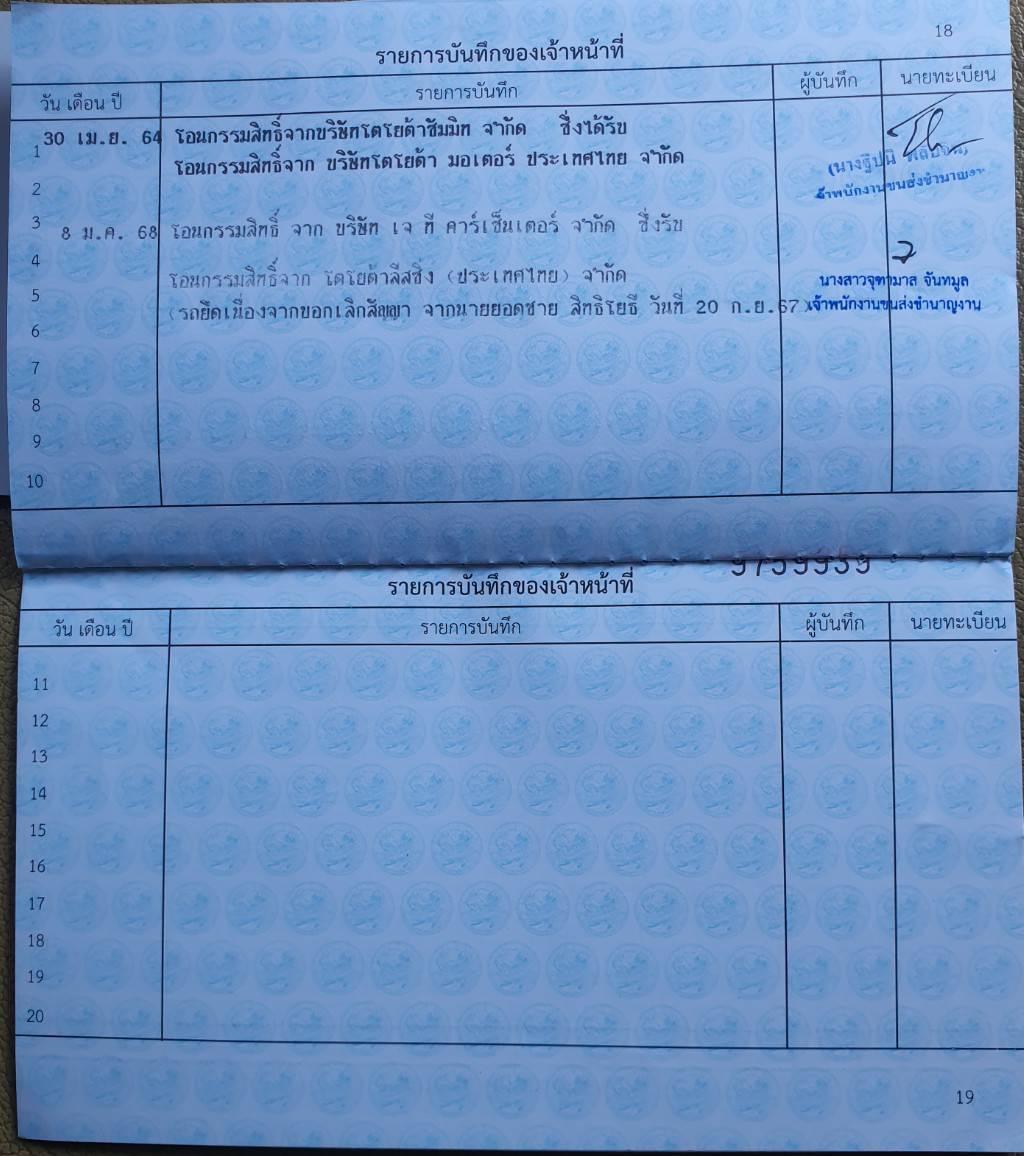 18
รายการบันทึกของเจ้าหน้าที่
วัน เดือน ปี รายการบันทึก ผู้บันทึก นายทะเบียน
30 เม.ย. 64 โอนกรรมสิทธิ์จากบริษัทโตโยต้าซัมมิท จำกัด ซึ่งได้รับ
1
โอนกรรมสิทธิ์จาก บริษัทโตโยต้า มอเตอร์ ประเทศไทย จำกัด
(นางฐิปนี
เจ้าพนักงานขนส่งชำนาญงาน
2
3
8 ม.ค. 68 โอนกรรมสิทธิ์ จาก บริษัท เจ ที คาร์เซ็นเตอร์ จำกัด ซึ่งรับ
4
โอนกรรมสิทธิ์จาก โตโยต้าลีสซิ่ง (ประเทศไทย) จำกัด นางสาวจุฑามาส จันทมูล
5
(รถยึดเนื่องจากบอกเลิกสัญญา จากนายยอดชาย สิทธิโยธี วันที่ 20 ก.ย.67) เจ้าพนักงานขนส่งชำนาญงาน
6
7
8
9
10
9759939
รายการบันทึกของเจ้าหน้าที่
วัน เดือน ปี รายการบันทึก ผู้บันทึก นายทะเบียน
11
12
13
14
15
16
17
18
19
20
19